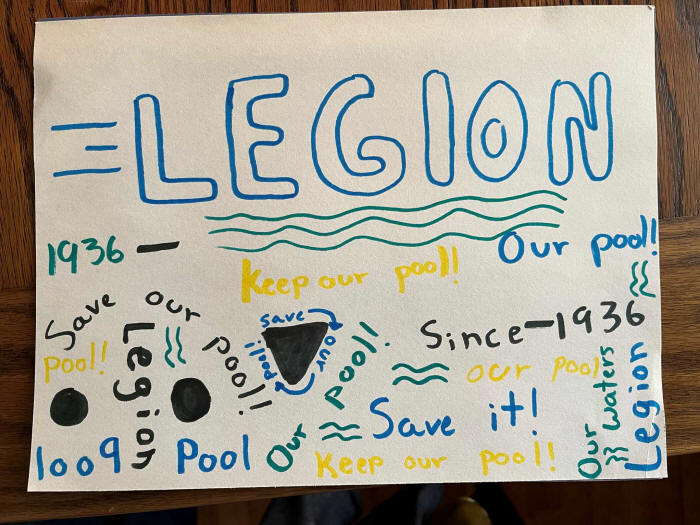 LEGION
1936 -
Our pool!
Keep our pool!
Save our pool!!
pool!
Legion
save our pool!
Our pool!
Since-1936
our pool
Save it!
Keep our pool!
Our waters
Legion
Pool